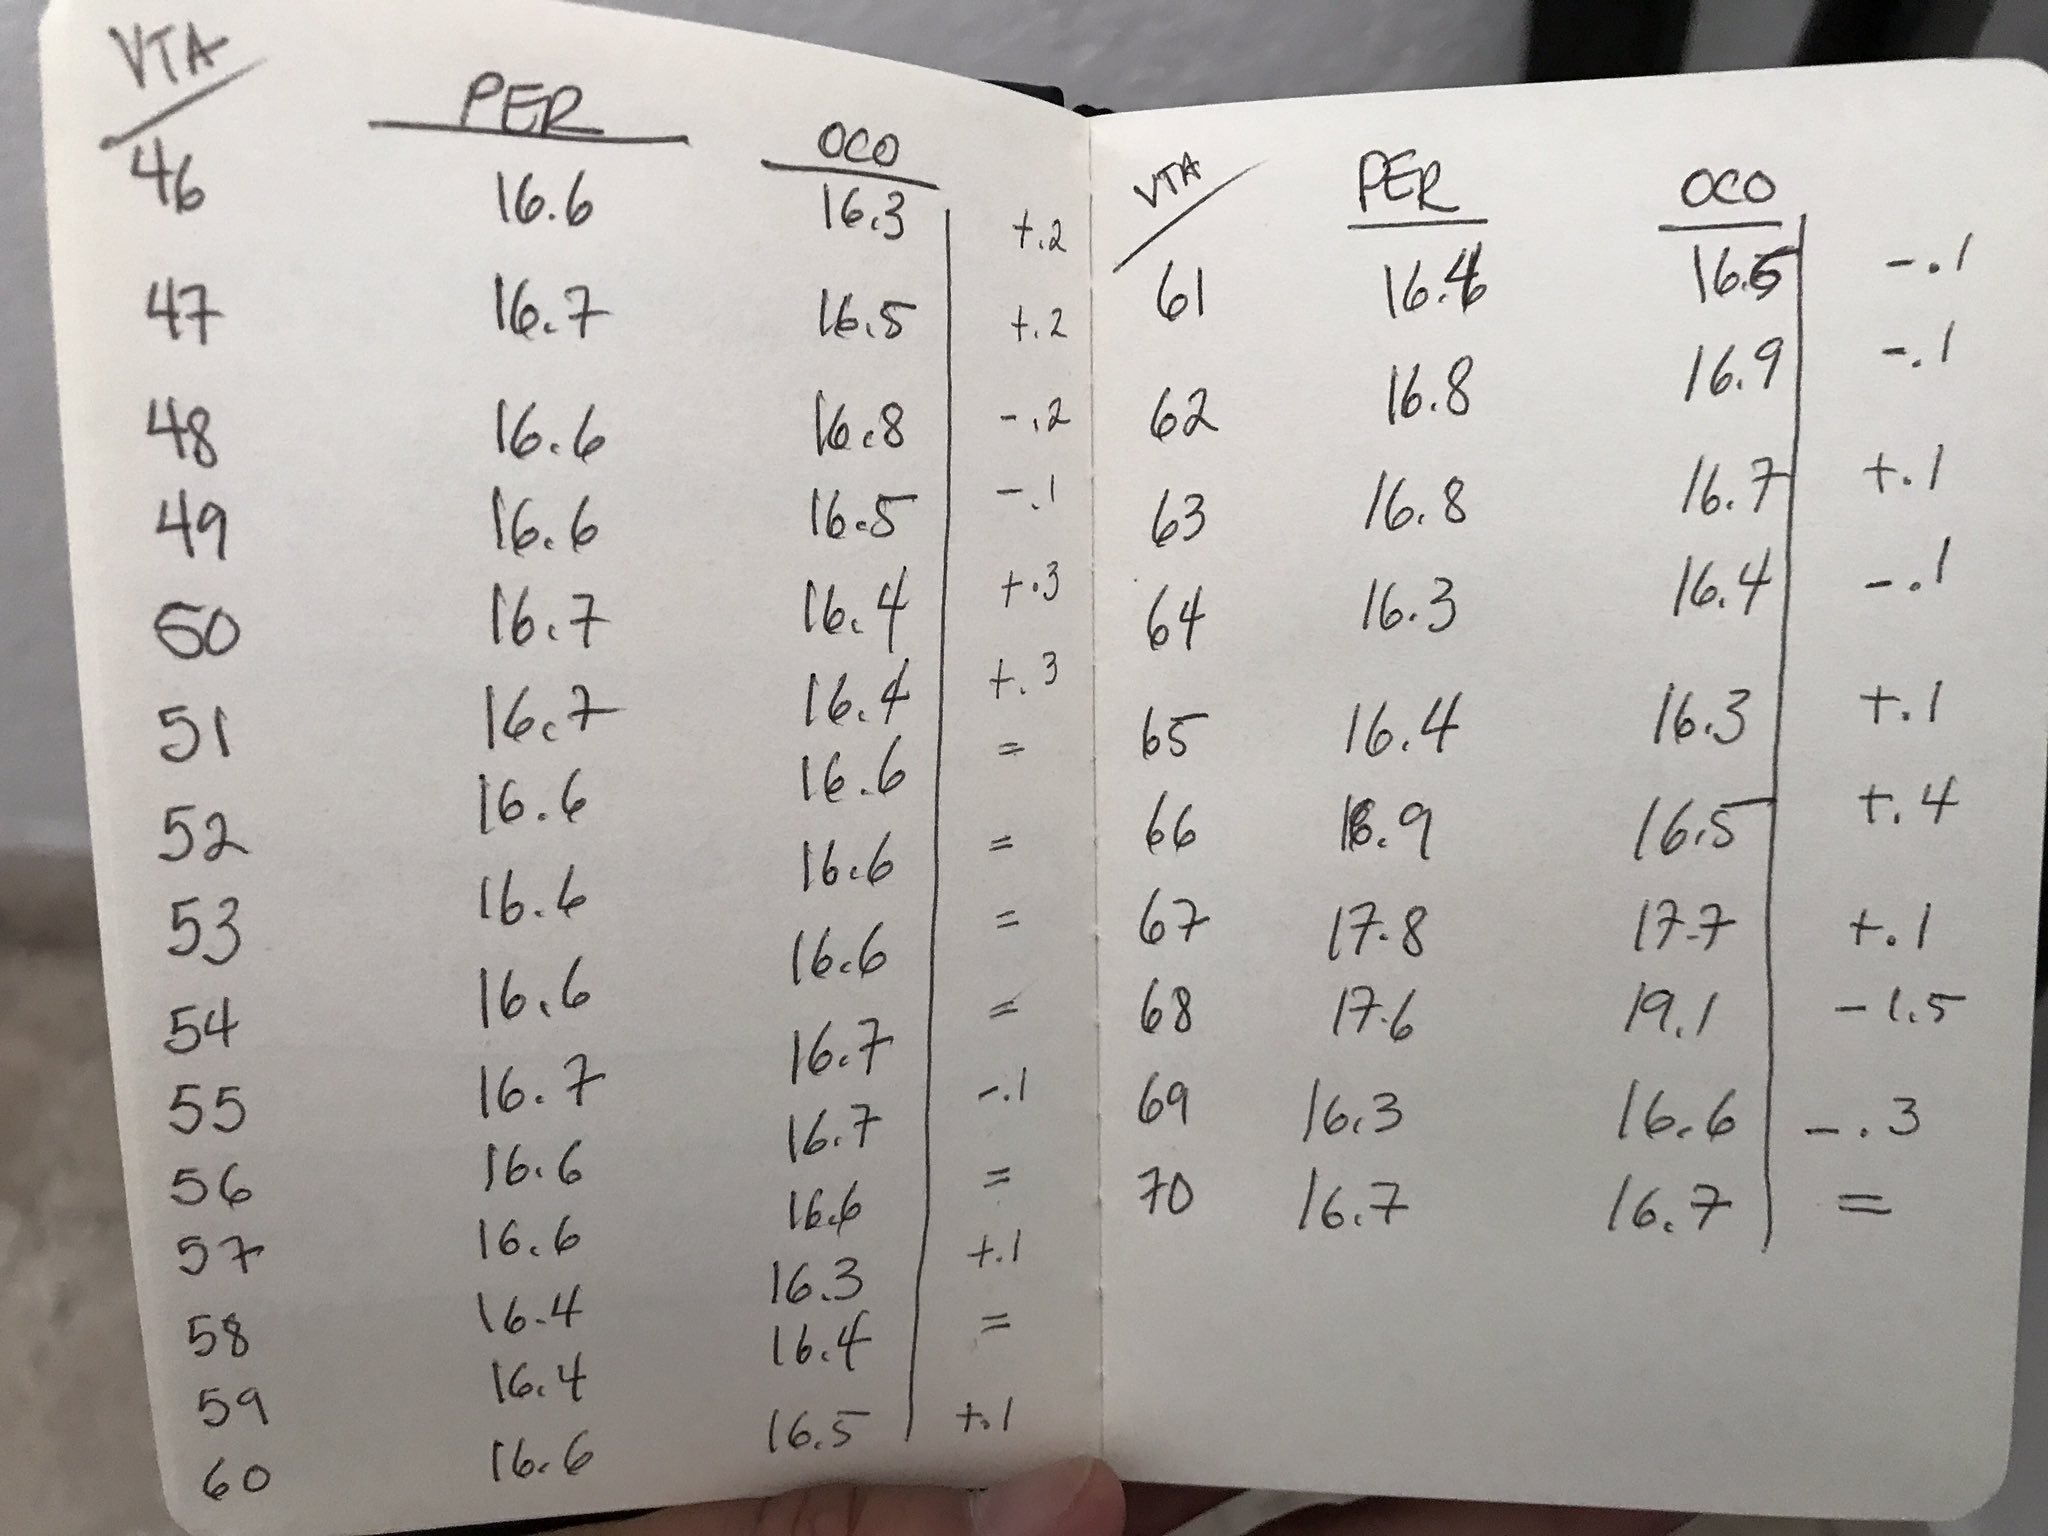 VTA PER OCO
46 16.6 16.3 +.2
47 16.7 16.5 +.2
48 16.6 16.8 -.2
49 16.6 16.5 -.1
50 16.7 16.4 +.3
51 16.7 16.4 +.3
52 16.6 16.6 =
53 16.6 16.6 =
54 16.6 16.6 =
55 16.7 16.7 =
56 16.6 16.7 -.1
57 16.6 16.6 =
58 16.4 16.3 +.1
59 16.4 16.4 =
60 16.6 16.5 +.1
VTA PER OCO
61 16.4 16.5 -.1
62 16.8 16.9 -.1
63 16.8 16.7 +.1
64 16.3 16.4 -.1
65 16.4 16.3 +.1
66 16.9 16.5 +.4
67 17.8 17.7 +.1
68 17.6 19.1 -1.5
69 16.3 16.6 -.3
70 16.7 16.7 =